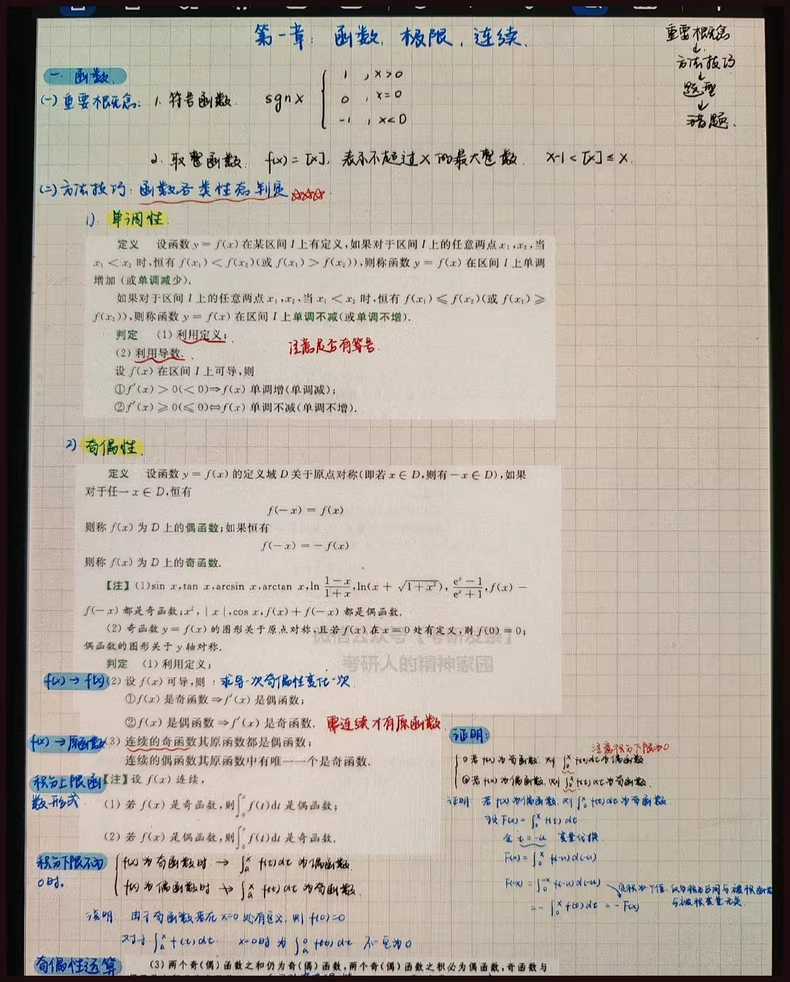 第一章：函数，极限，连续．
重要概念
↓
方法技巧
↓
题型
↓
错题．
一．函数．
(一)重要概念：1. 符号函数． sgn x { 1 , x>0
0 , x=0
-1 , x<0
2. 取整函数． f(x)=[x]，表示不超过x的最大整数． x-1<[x]≤x．
(二)方法技巧：函数各类性态判定 ☆☆☆☆
1) 单调性．
定义 设函数 y = f(x) 在某区间 I 上有定义,如果对于区间 I 上的任意两点 x₁,x₂,当
x₁ < x₂ 时,恒有 f(x₁) < f(x₂)(或 f(x₁) > f(x₂)),则称函数 y = f(x) 在区间 I 上单调
增加 (或单调减少).
如果对于区间 I 上的任意两点 x₁,x₂,当 x₁ < x₂ 时,恒有 f(x₁) ⩽ f(x₂)(或 f(x₁) ⩾
f(x₂)),则称函数 y = f(x) 在区间 I 上单调不减(或单调不增).
判定 (1) 利用定义;
(2) 利用导数. 注意是否有等号
设 f(x) 在区间 I 上可导,则
①f′(x) > 0(< 0)⇒f(x) 单调增(单调减);
②f′(x) ⩾ 0(⩽ 0)⇔f(x) 单调不减(单调不增).
2) 奇偶性．
定义 设函数 y = f(x) 的定义域 D 关于原点对称(即若 x ∈ D,则有 −x ∈ D),如果
对于任一 x ∈ D,恒有
f(−x) = f(x)
则称 f(x) 为 D 上的偶函数;如果恒有
f(−x) = −f(x)
则称 f(x) 为 D 上的奇函数.
【注】(1)sin x,tan x,arcsin x,arctan x,ln (1−x)/(1+x),ln(x + √(1+x²)), (eˣ−1)/(eˣ+1),f(x) −
f(−x) 都是奇函数;x²,|x|,cos x,f(x)+f(−x) 都是偶函数.
(2) 奇函数 y = f(x) 的图形关于原点对称,且若 f(x) 在 x = 0 处有定义,则 f(0) = 0;
偶函数的图形关于 y 轴对称.
考研人的精神家园
判定 (1) 利用定义;
f(x)→f′(x) (2) 设 f(x) 可导,则：求导一次奇偶性变化一次．
①f(x) 是奇函数⇒f′(x) 是偶函数;
②f(x) 是偶函数⇒f′(x) 是奇函数. 要连续才有原函数
f(x)→原函数 (3) 连续的奇函数其原函数都是偶函数;
连续的偶函数其原函数中有唯一一个是奇函数.
积分上限函数形式 【注】设 f(x) 连续,
(1) 若 f(x) 是奇函数,则∫₀ˣ f(t)dt 是偶函数;
(2) 若 f(x) 是偶函数,则∫₀ˣ f(t)dt 是奇函数.
积分下限不为0时． { f(x)为奇函数时 → ∫ₐˣ f(t)dt 为偶函数．
f(x)为偶函数时 ↛ ∫ₐˣ f(t)dt 为奇函数．
说明：由于奇函数若在x=0处有定义，则f(0)=0
对于∫ₐˣ f(t)dt x=0时为∫ₐ⁰ f(t)dt 不一定为0
证明：
注意积分下限为0
{ ①若f(x)为奇函数．则∫₀ˣ f(t)dt为偶函数
②若f(x)为偶函数．则∫₀ˣ f(t)dt为奇函数．
证明 若f(x)为偶函数，则∫₀ˣ f(t)dt为奇函数
F(x)=∫₀ˣ f(t)dt
令t=-u 变量代换．
F(x)=∫₀ˣ f(-u)d(-u)
F(-x)=∫₀⁻ˣ f(-u)d(-u)
=-∫₀ˣ f(t)dt = -F(x)
奇偶性运算 (3) 两个奇(偶)函数之和仍为奇(偶)函数,两个奇(偶)函数之积必为偶函数,奇函数与